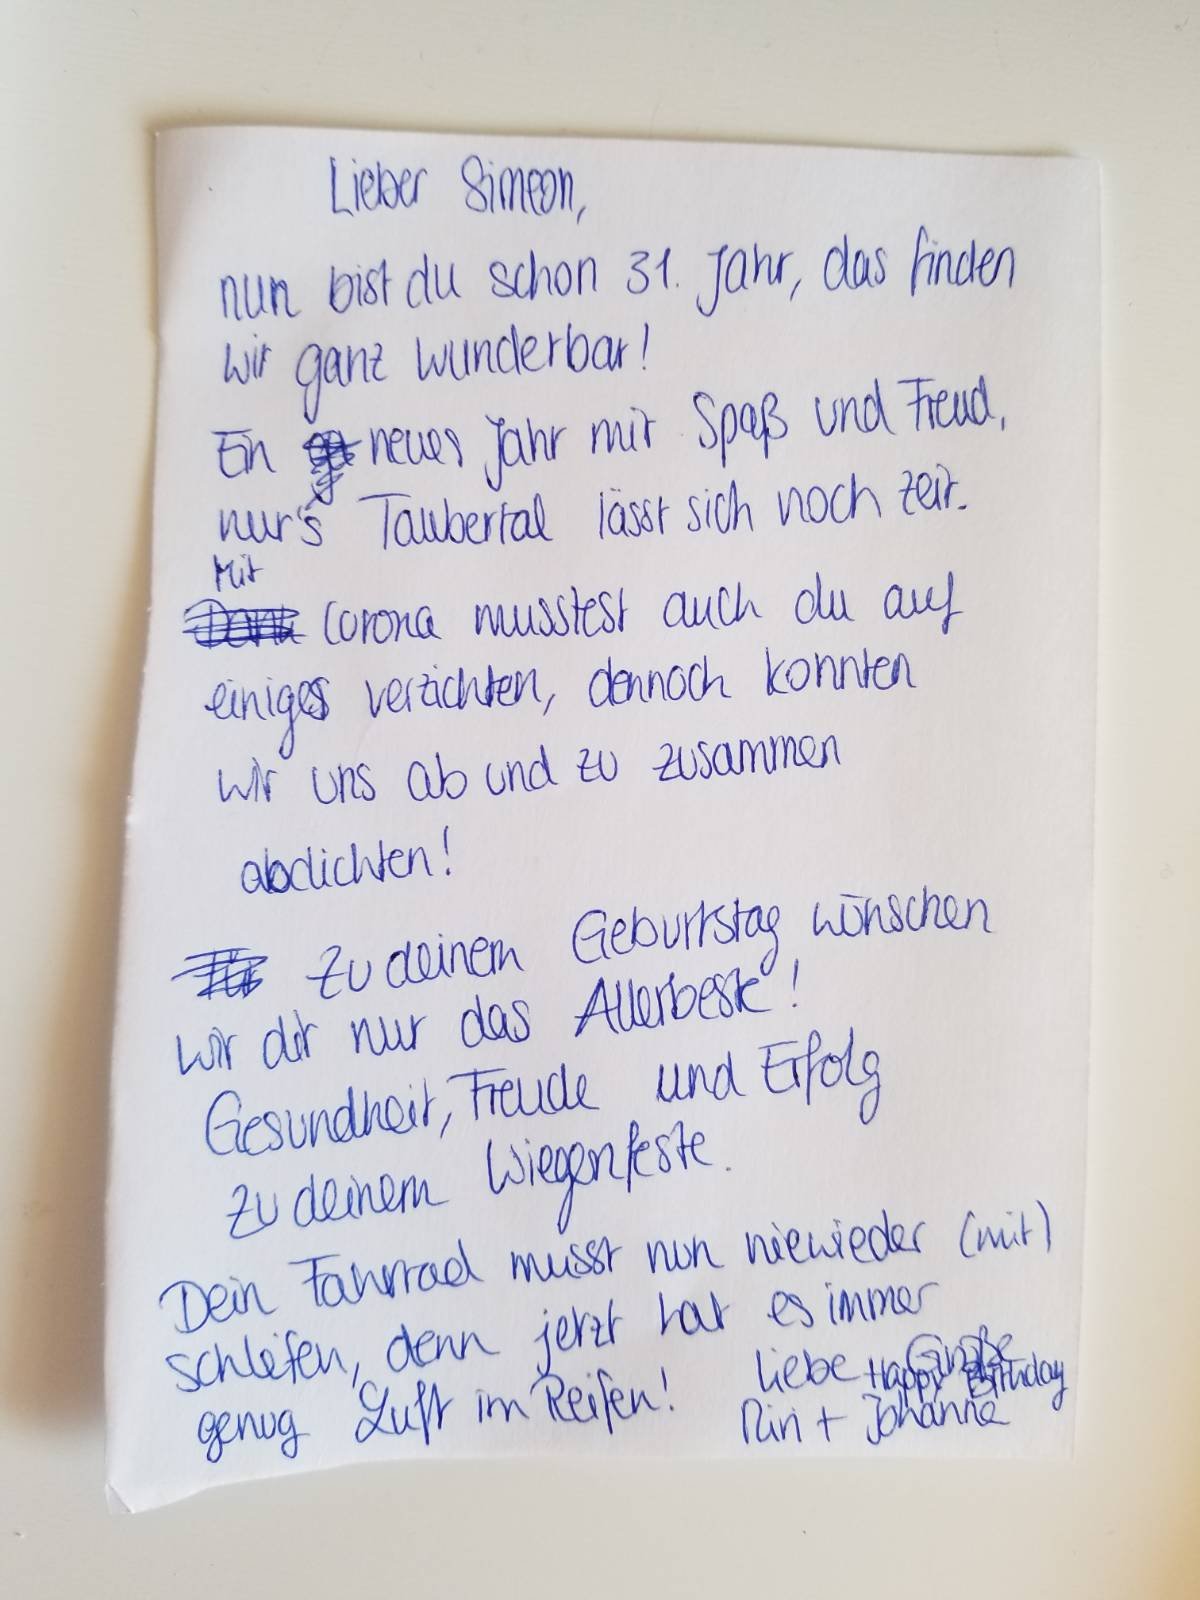 Lieber Simeon,
nun bist du schon 31. Jahr, das finden
wir ganz wunderbar!
Ein neues Jahr mit Spaß und Freud,
nur's Taubertal lässt sich noch Zeit.
Mit
Corona musstest auch du auf
einiges verzichten, dennoch konnten
wir uns ab und zu zusammen
abdichten!
Zu deinem Geburtstag wünschen
wir dir nur das Allerbeste!
Gesundheit, Freude und Erfolg
zu deinem Wiegenfeste.
Dein Fahrrad musst nun niewieder (mit)
schleifen, denn jetzt hat es immer
genug Luft im Reifen!
Liebe Grüße
Happy Birthday
+ Johanna